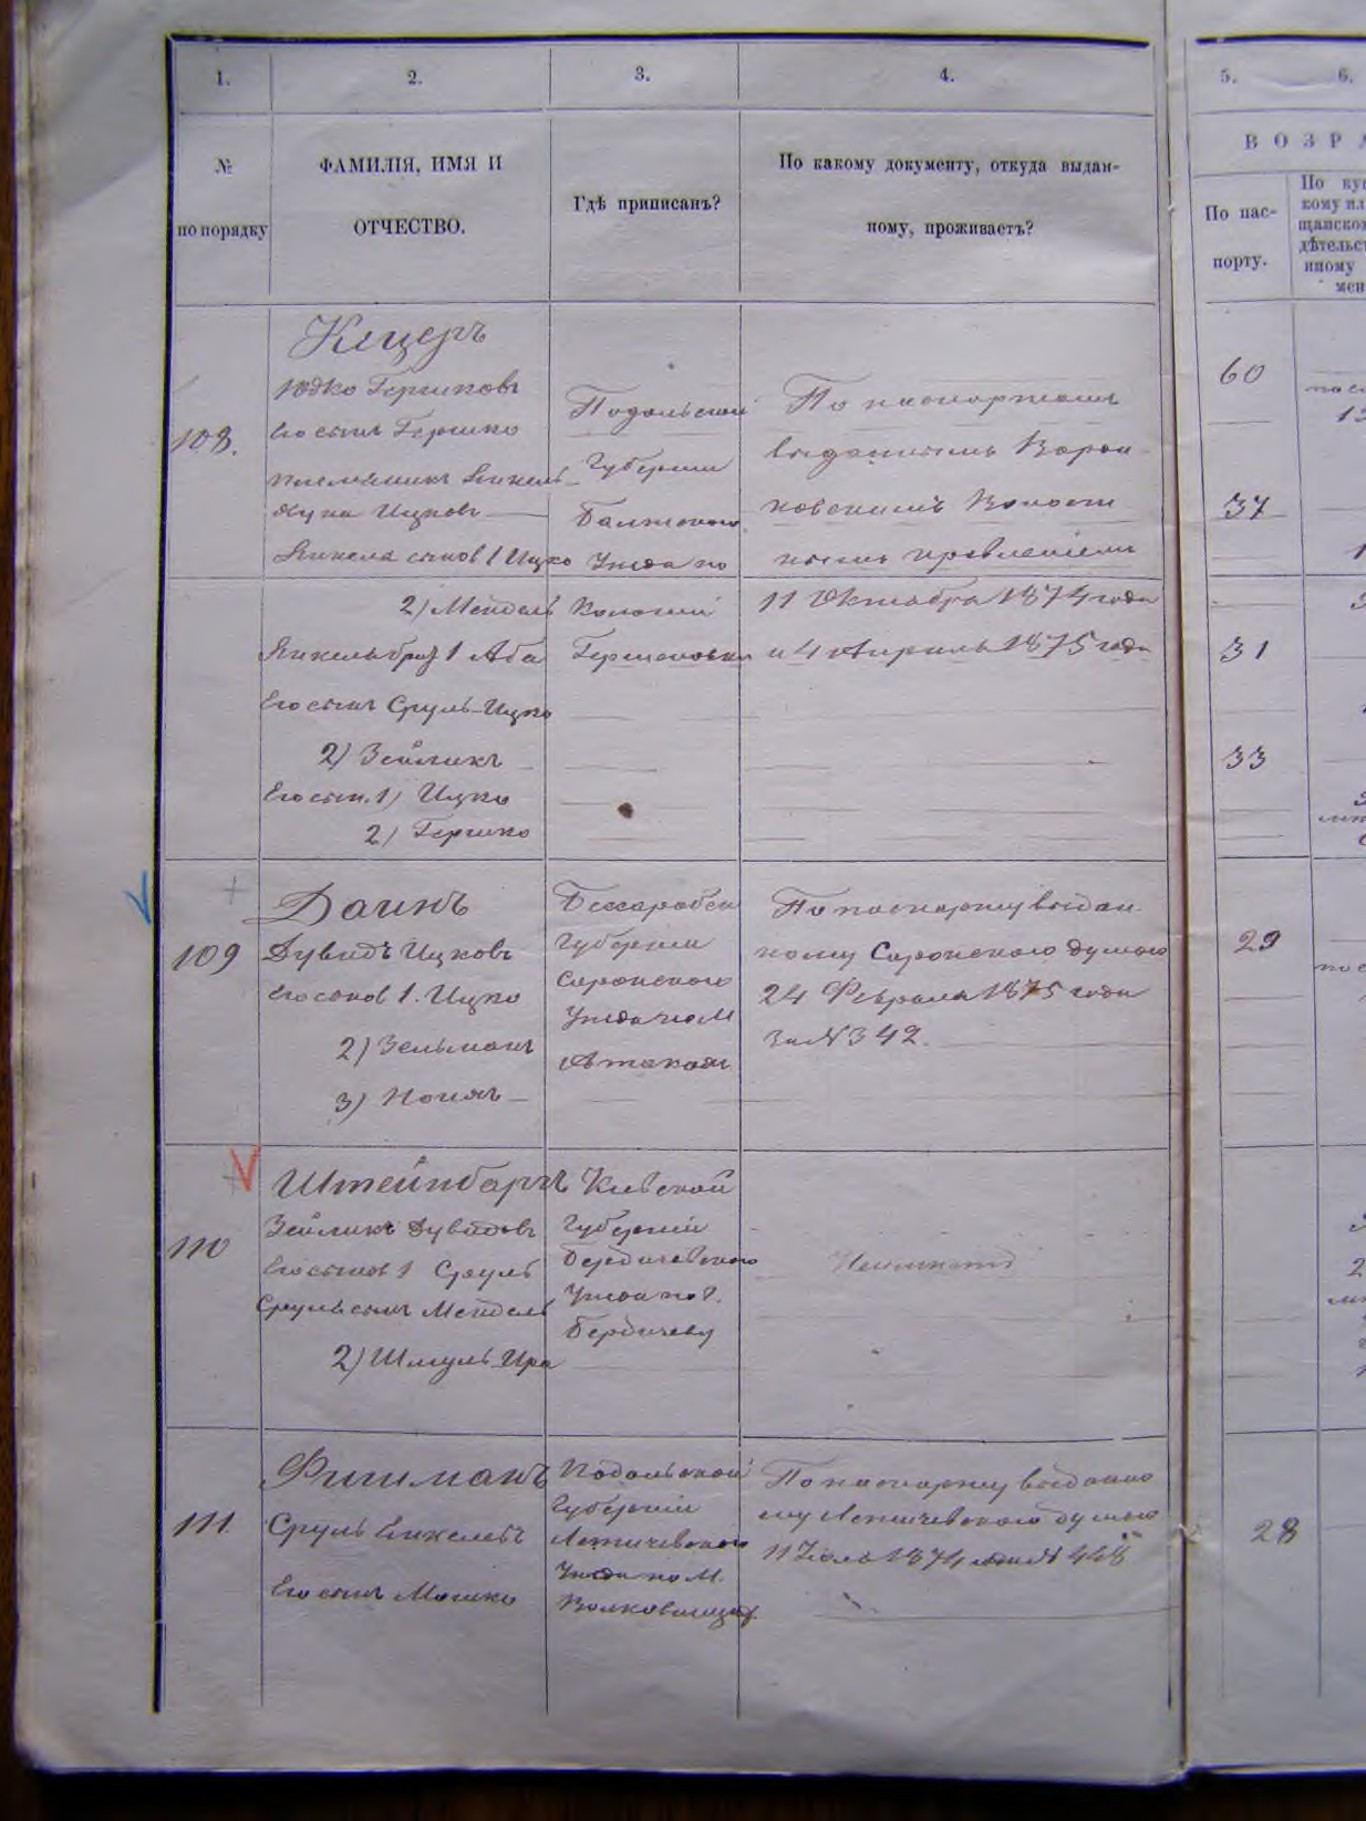 1.
2.
3.
4.
5.
6.
№
по порядку
ФАМИЛІЯ, ИМЯ И
ОТЧЕСТВО.
Гдѣ приписанъ?
По какому документу, откуда выдан-
ному, проживаетъ?
ВОЗРА
По пас-
порту.
108.
Юдко Гершковъ
Его сынъ Гершко
племянникъ Янкель
Ицковъ
Янкеля сынов 1 Ицко
2) Мендель
1 Аба
Его сынъ Сруль-Ицко
2) Зейликъ
Его сын. 1) Ицко
2) Гершко
Подольской
Губерніи
Балтского
Уезда по
Колоніи
По паспортамъ
выданнымъ Ворон-
ковскимъ Волост
нымъ правленіемъ
11 Октября 1874 года
и 4 Апреля 1875 года
60
37
31
33
109
Даинъ
Дувидъ Ицковъ
Его сынов 1. Ицко
2) Зельманъ
3)
Бессарабской
Губерніи
Сорокского
Уезда по М
Атакам
По паспорту выдан
ному Сорокского думою
24 Февраля 1875 года
За № 342.
29
110
Штейнбаргъ
Зейликъ Дувидовъ
Его сынов 1 Сруль
Сруля сынъ Мендель
2) Шмуль-Ира
Кіевской
Губерніи
Бердичевского
Уезда по г.
Бердичеву
111
Фишманъ
Сруль Енкелевъ
Его сынъ Мошко
Подольской
Губерніи
Летичевского
Уезда по М.
По паспорту выданно
му Летичевского думою
11 Іюля 1874 года № 448
28